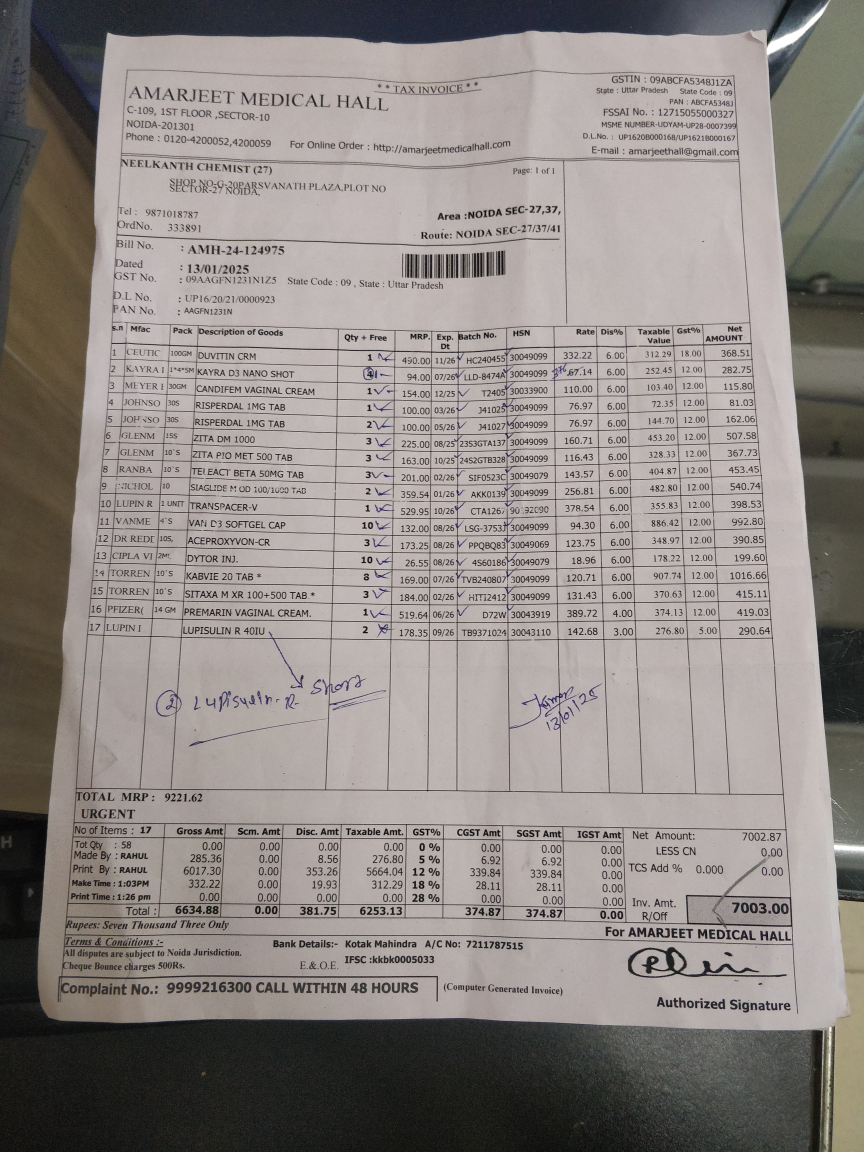 **TAX INVOICE**
AMARJEET MEDICAL HALL
C-109, 1ST FLOOR ,SECTOR-10
NOIDA-201301
Phone : 0120-4200052,4200059 For Online Order : http://amarjeetmedicalhall.com
GSTIN : 09ABCFA5348J1ZA
State : Uttar Pradesh State Code : 09
PAN : ABCFA5348J
FSSAI No. : 12715055000327
MSME NUMBER-UDYAM-UP28-0007399
D.L.No. : UP1620B000168/UP1621B000167
E-mail : amarjeethall@gmail.com
NEELKANTH CHEMIST (27) Page: 1 of 1
SHOP NO-G-20PARSVANATH PLAZA,PLOT NO
SECTOR-27 NOIDA,
Tel : 9871018787 Area :NOIDA SEC-27,37,
OrdNo. 333891 Route: NOIDA SEC-27/37/41
Bill No. : AMH-24-124975
Dated : 13/01/2025
GST No. : 09AAGFN1231N1Z5 State Code : 09 , State : Uttar Pradesh
D.L No. : UP16/20/21/0000923
PAN No. : AAGFN1231N
s.n Mfac Pack Description of Goods Qty + Free MRP. Exp. Dt Batch No. HSN Rate Dis% Taxable Value Gst% Net AMOUNT
1 CEUTIC 100GM DUVITIN CRM 1 490.00 11/26 HC240455 30049099 332.22 6.00 312.29 18.00 368.51
2 KAYRA I 1*4*5M KAYRA D3 NANO SHOT 4 94.00 07/26 LLD-8474A 30049099 67.14 6.00 252.45 12.00 282.75
3 MEYER I 30GM CANDIFEM VAGINAL CREAM 1 154.00 12/25 T2405 30033900 110.00 6.00 103.40 12.00 115.80
4 JOHNSO 30S RISPERDAL 1MG TAB 1 100.00 03/26 J41025 30049099 76.97 6.00 72.35 12.00 81.03
5 JOHNSO 30S RISPERDAL 1MG TAB 2 100.00 05/26 J41027 30049099 76.97 6.00 144.70 12.00 162.06
6 GLENM 15S ZITA DM 1000 3 225.00 08/25 23S3GTA137 30049099 160.71 6.00 453.20 12.00 507.58
7 GLENM 10`S ZITA PIO MET 500 TAB 3 163.00 10/25 24S2GTB328 30049099 116.43 6.00 328.33 12.00 367.73
8 RANBA 10`S TELEACT BETA 50MG TAB 3 201.00 02/26 SIF0523C 30049079 143.57 6.00 404.87 12.00 453.45
9 NICHOL 10 SIAGLIDE M OD 100/1000 TAB 2 359.54 01/26 AKK0139 30049099 256.81 6.00 482.80 12.00 540.74
10 LUPIN R 1 UNIT TRANSPACER-V 1 529.95 10/26 CTA1267 90192090 378.54 6.00 355.83 12.00 398.53
11 VANME 4`S VAN D3 SOFTGEL CAP 10 132.00 08/26 LSG-3753J 30049099 94.30 6.00 886.42 12.00 992.80
12 DR REDE 10S, ACEPROXYVON-CR 3 173.25 08/26 PPQBQ83 30049069 123.75 6.00 348.97 12.00 390.85
13 CIPLA VI 2ML DYTOR INJ. 10 26.55 08/26 4S60186 30049079 18.96 6.00 178.22 12.00 199.60
14 TORREN 10`S KABVIE 20 TAB * 8 169.00 07/26 TVB240807 30049099 120.71 6.00 907.74 12.00 1016.66
15 TORREN 10`S SITAXA M XR 100+500 TAB.* 3 184.00 02/26 HITI2412 30049099 131.43 6.00 370.63 12.00 415.11
16 PFIZER( 14 GM PREMARIN VAGINAL CREAM. 1 519.64 06/26 D72W 30043919 389.72 4.00 374.13 12.00 419.03
17 LUPIN I LUPISULIN R 40IU 2 178.35 09/26 TB9371024 30043110 142.68 3.00 276.80 5.00 290.64
② Lupisulin-R- Short
13/01/25
TOTAL MRP : 9221.62
URGENT
No of Items : 17 Gross Amt Scm. Amt Disc. Amt Taxable Amt. GST% CGST Amt SGST Amt IGST Amt Net Amount: 7002.87
Tot Qty : 58 0.00 0.00 0.00 0.00 0 % 0.00 0.00 0.00 LESS CN 0.00
Made By : RAHUL 285.36 0.00 8.56 276.80 5 % 6.92 6.92 0.00 TCS Add % 0.000 0.00
Print By : RAHUL 6017.30 0.00 353.26 5664.04 12 % 339.84 339.84 0.00
Make Time : 1:03PM 332.22 0.00 19.93 312.29 18 % 28.11 28.11 0.00
Print Time : 1:26 pm 0.00 0.00 0.00 0.00 28 % 0.00 0.00 0.00 Inv. Amt. 7003.00
Total : 6634.88 0.00 381.75 6253.13 374.87 374.87 0.00 R/Off
Rupees: Seven Thousand Three Only For AMARJEET MEDICAL HALL
Terms & Conditions :- Bank Details:- Kotak Mahindra A/C No: 7211787515
All disputes are subject to Noida Jurisdiction. IFSC :kkbk0005033
Cheque Bounce charges 500Rs. E.& O.E.
Complaint No.: 9999216300 CALL WITHIN 48 HOURS (Computer Generated Invoice)
Authorized Signature